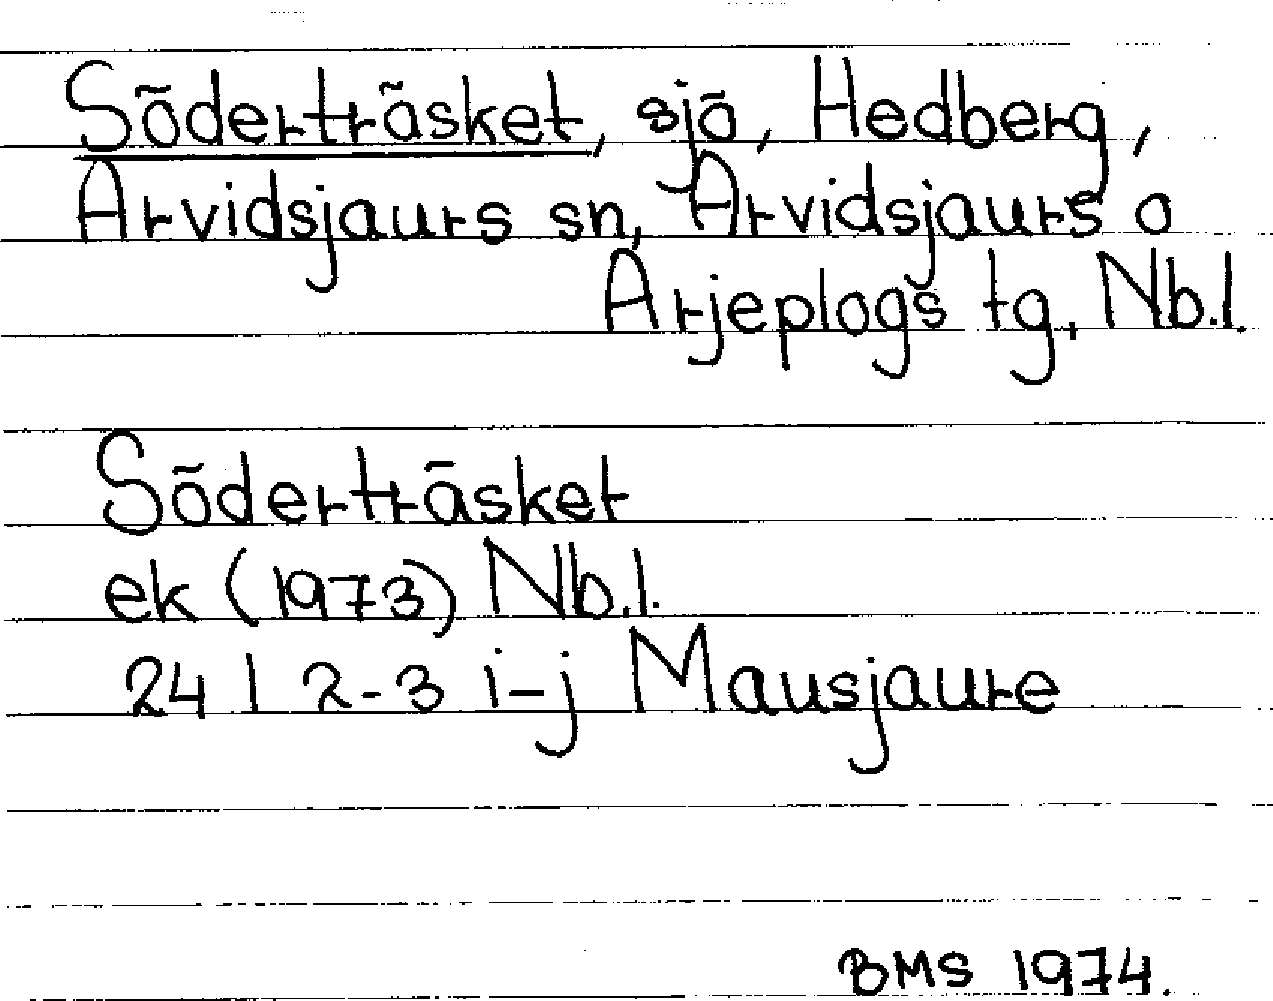 Söderträsket, sjö, Hedberg,
Arvidsjaurs sn, Arvidsjaurs o
Arjeplogs tg, Nb.l.
Söderträsket
ek (1973) Nb.l.
24 I 2-3 i-j Mausjaure
BMS 1974.